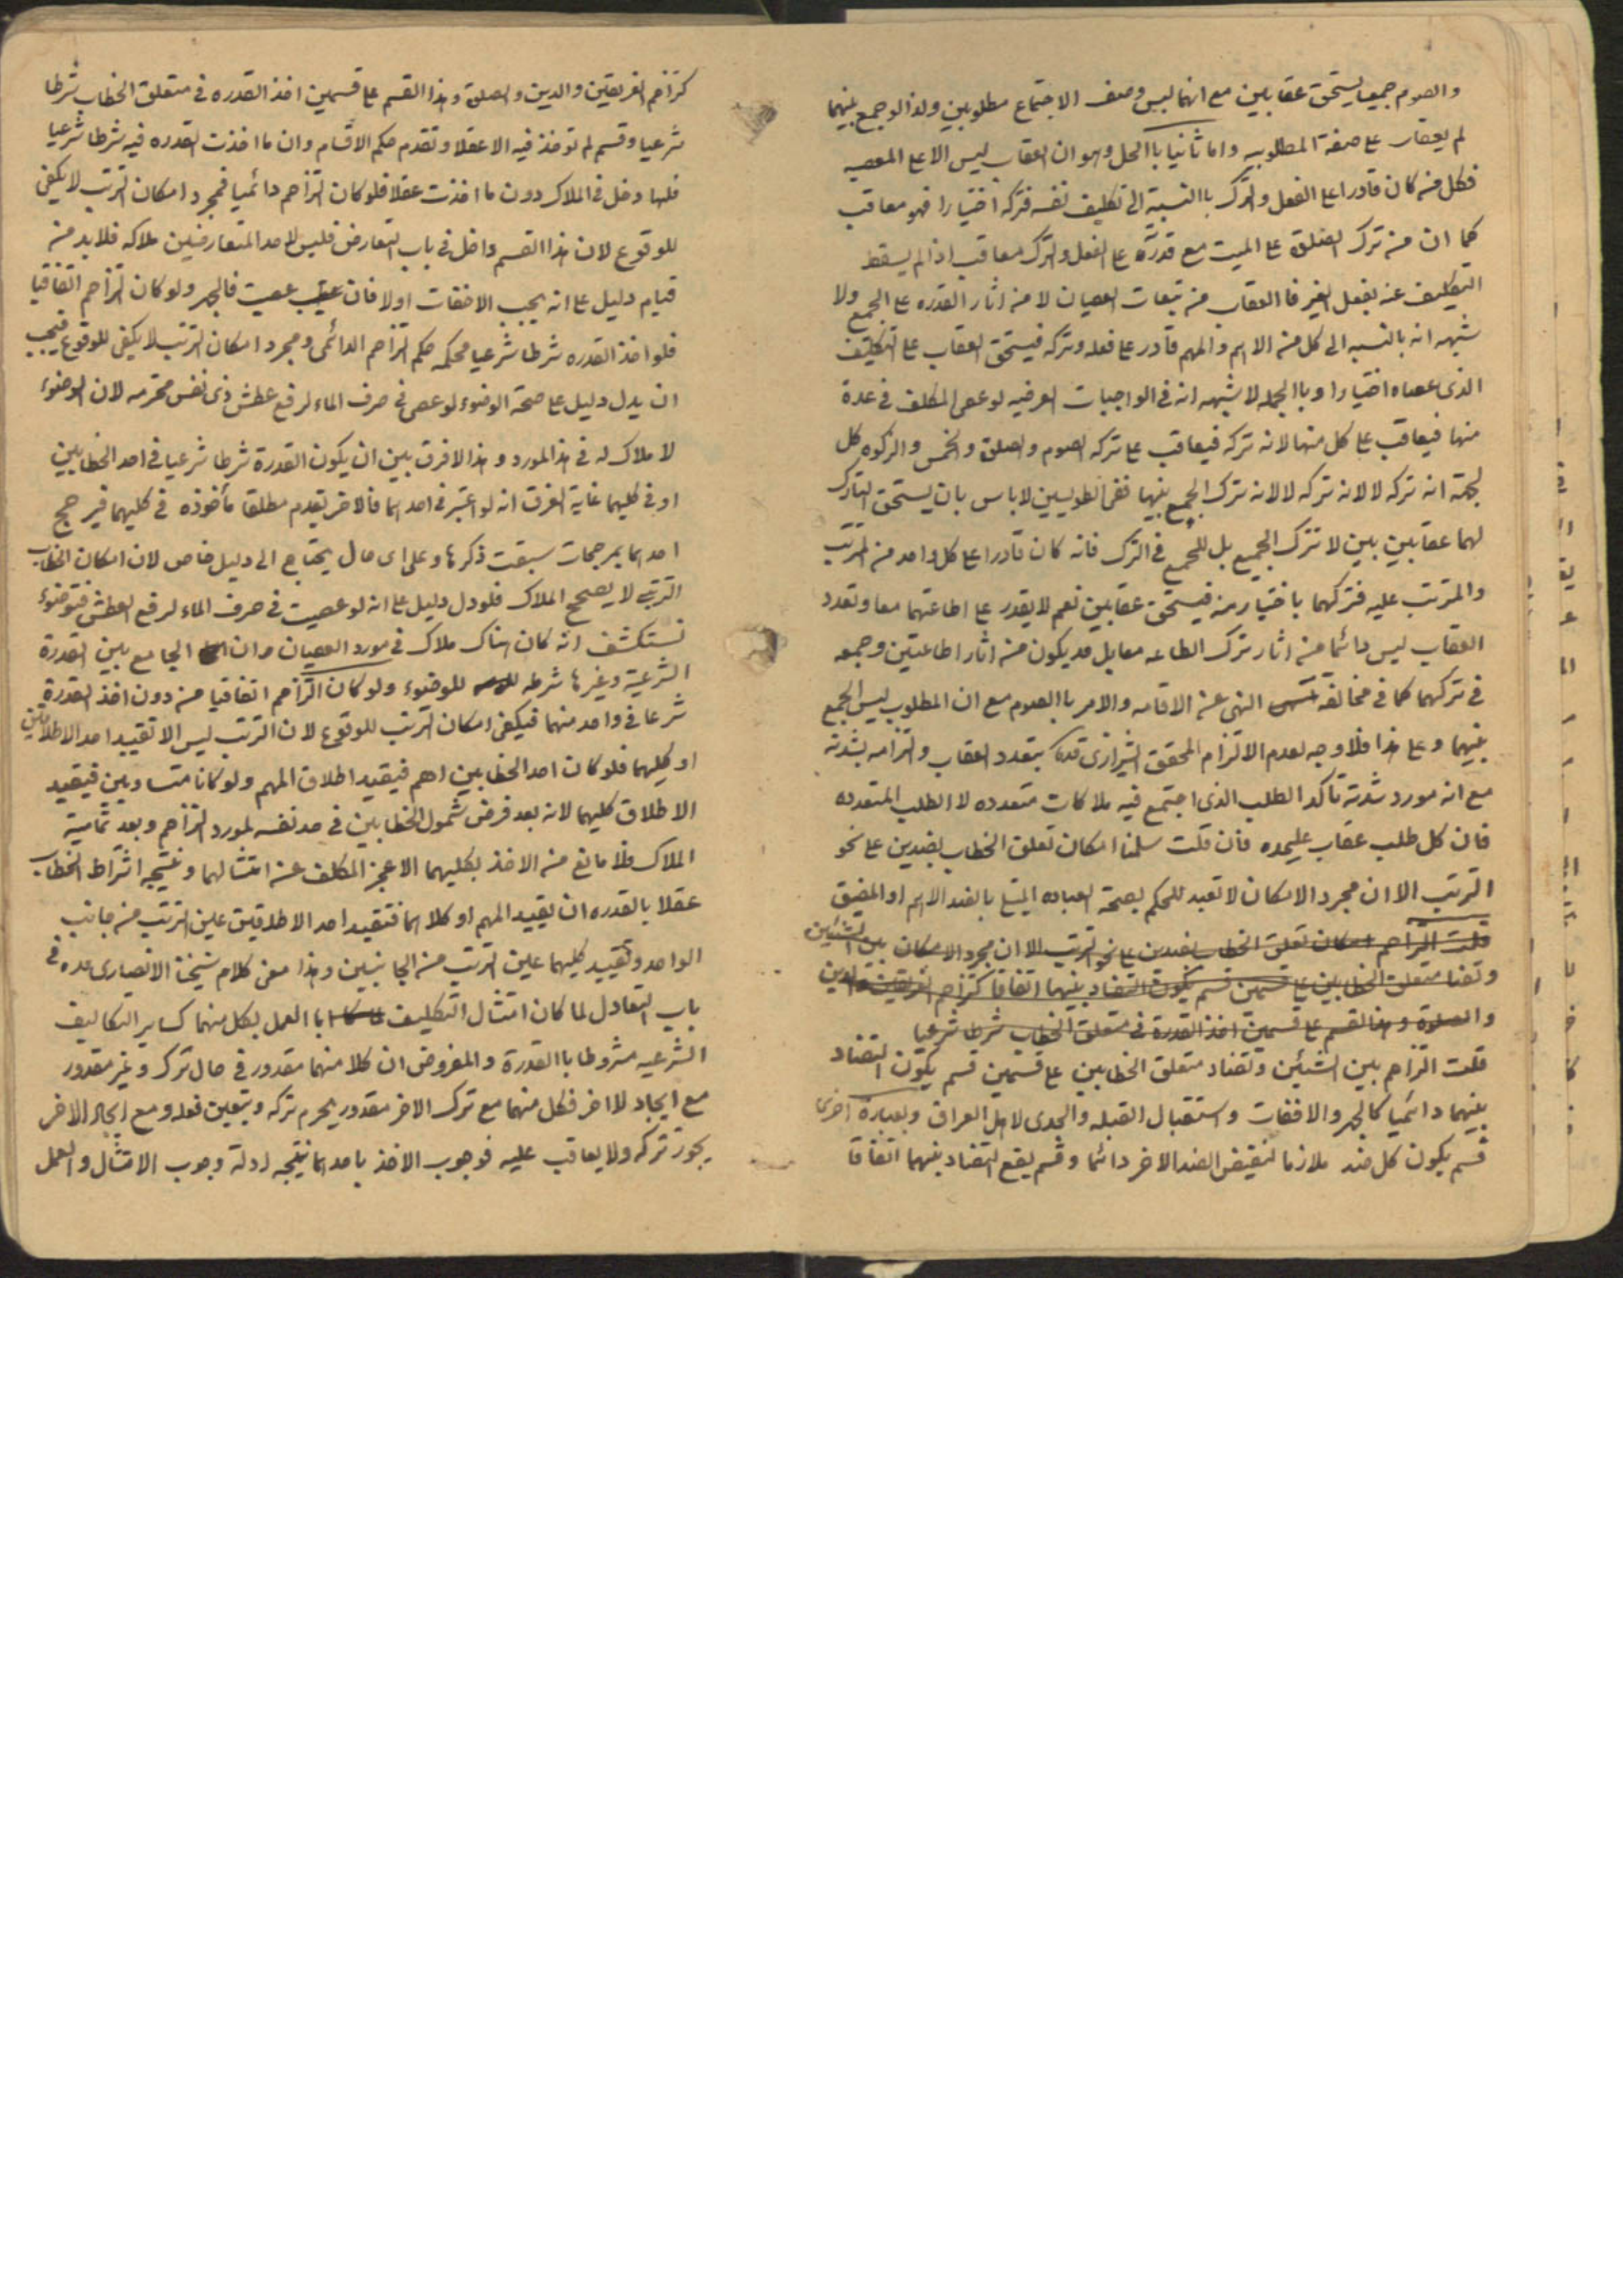 والصوم جميعا يستحق عقابين مع انهما ليس وصف الاجتماع مطلوبين ولذا لو جمع بينهما
لم يقعا على صفة المطلوبيه واما ثانيا باالحل وهو ان العقاب ليس الا على المعصيه
فكل من كان قادرا على الفعل والترك باالنسبة الى تكليف نفسه فتركه اختيارا فهو معاقب
كما ان من ترك الصلوة على الميت مع قدرته على الفعل والترك معاقب اذا لم يسقط
التكليف عنه بفعل الغير فا العقاب من تبعات العصيان لا من اثار القدره على الجمع ولا
شبهه انه بالنسبه الى كل من الاهم والمهم قادر على فعله وتركه فيستحق العقاب على التكليف
الذى عصاه اختيارا وباالجمله لا شبهه انه فى الواجبات العرضيه لو عصى المكلف فى عدة
منها فيعاقب على كل منها لانه تركه فيعاقب على تركه الصوم والصلوة والخمس والزكوه كل
لجهة انه تركه لا لانه تركه لا لانه ترك الجمع بينها ففى الطوليين لا باس بان يستحق التارك
لهما عقابين بين لا لترك الجميع بل للجمع فى الترك فانه كان قادرا على كل واحد من المرتب
والمترتب عليه فتركهما باختيار منه فيستحق عقابين نعم لا يقدر على اطاعتهما معا وتعدد
العقاب ليس دائما من اثار ترك الطاعه معا بل قد يكون من اثار اطاعتين وجمعه
فى تركهما كما فى مخالفة النهى عن الاقامه والامر باالصوم مع ان المطلوب ليس الجمع
بينهما وعلى هذا فلا وجه لعدم الالتزام المحقق الشيرازى قده بتعدد العقاب والتزامه بشدته
مع انه مورد شدته تأكد الطلب الذى اجتمع فيه ملاكات متعدده لا الطلب المتعدده
فان كل طلب عقاب عليحده فان قلت سلمنا امكان تعلق الخطاب بضدين على نحو
الترتب الا ان مجرد الامكان لا تفيد للحكم بصحة العباده المبتلى بالضد الاهم او المضيق
قلت التزاحم امكان تعلق الخطاب بضدين على نحو الترتب الا ان مجرد الامكان بين الشيئين
وتضاد متعلق الخطابين على قسمين قسم يكون التضاد بينهما اتفاقا كتزاحم الغريقين والدين
والصلوة وهذا القسم على قسمين اخذ القدرة فى متعلق الخطاب شرطا شرعيا
قلت التزاحم بين الشيئين وتضاد متعلق الخطابين على قسمين قسم يكون التضاد
بينهما دائميا كالجهر والاخفات واستقبال القبله والجدى لاهل العراق وبعبارة اخرى
قسم يكون كل ضد ملازما لنقيض الضد الاخر دائما وقسم يقع التضاد بينهما اتفاقا
كتزاحم الغريقين والدين والصلوة وهذا القسم على قسمين اخذ القدره فى متعلق الخطاب شرطا
شرعيا وقسم لم توخذ فيه الا عقلا وتقدم حكم الاقسام وان ما اخذت القدره فيه شرطا شرعيا
فلها دخل فى الملاك دون ما اخذت عقلا فلو كان التزاحم دائميا فمجرد امكان الترتب لا يكفى
للوقوع لان هذا القسم داخل فى باب التعارض فليس لاحد المتعارضين ملاكه فلا بد من
قيام دليل على انه يجب الاخفات اولا فان عصيت فالجهر ولو كان التزاحم اتفاقيا
فلو اخذ القدره شرطا شرعيا فحكمه حكم التزاحم الدائمى ومجرد امكان الترتب لا يكفى للوقوع فيجب
ان يدل دليل على صحة الوضوء لو عصى فى صرف الماء لرفع عطش ذى نفس محترمه لان الوضوء
لا ملاك له فى هذ المورد وهذا لا فرق بين ان يكون القدرة شرطا شرعيا فى احد الخطابين
او فى كليهما غاية الفرق انه لو اعتبر فى احدهما فالاخر يقدم مطلقا مأخوذه فى كليهما فيرجح
احدهما بمرجحات سبقت ذكرها وعلى اى حال يحتاج الى دليل خاص لان امكان الخطاب
الترتبى لا يصحح الملاك فلو دل دليل على انه لو عصيت فى صرف الماء لرفع العطش فتوضوء
نستكشف انه كان هناك ملاك فى مورد العصيان وان الجامع بين القدرة
الشرعية وغيرها شرطه للوضوء ولو كان التزاحم اتفاقيا من دون اخذ القدرة
شرعا فى واحد منهما فيكفى امكان الترتب للوقوع لان الترتب ليس الا تقييد احد الاطلاقين
او كليهما فلو كان احد الخطابين اهم فيقيد اطلاق المهم ولو كانا متساويين فيقيد
الاطلاق كليهما لانه بعد فرض شمول الخطابين فى حد نفسه لمورد التزاحم وبعد تماميت
الملاك فلا مانع من الاخذ بكليهما الا عجز المكلف عن امتثالهما ونتيجه اشتراط الخطاب
عقلا بالقدره ان تقييد المهم او كلاهما فتقييد احد الاطلاقين عين الترتب من جانب
الواحد وتقييد كليهما عين الترتب من الجانبين وهذا معنى كلام شيخنا الانصارى قده فى
باب التعادل لما كان امتثال التكليف باالعمل بكل منهما كساير التكاليف
الشرعيه مشروطا باالقدرة والمفروض ان كلا منهما مقدور فى حال ترك وغير مقدور
مع ايجاد لاخر فكل منهما مع ترك الاخر مقدور يحرم تركه ويتعين فعله ومع ايجاد الاخر
يجوز تركه ولا يعاقب عليه فوجوب الاخذ باحدهما نتيجه ادلة وجوب الامتثال والعمل